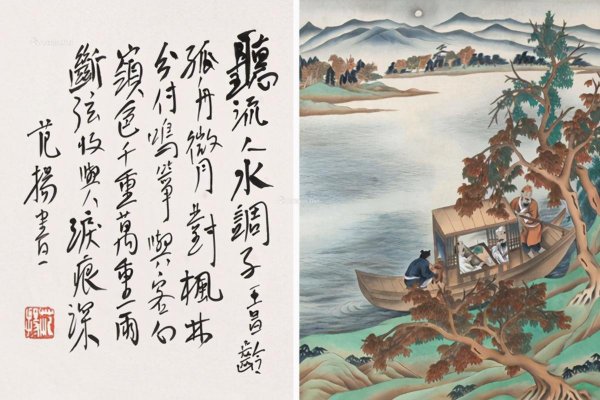 聽流人水調子 王昌齡
孤舟微月對楓林
分付鳴箏與客心
嶺色千重萬重雨
斷弦收與淚痕深
范揚書
范揚